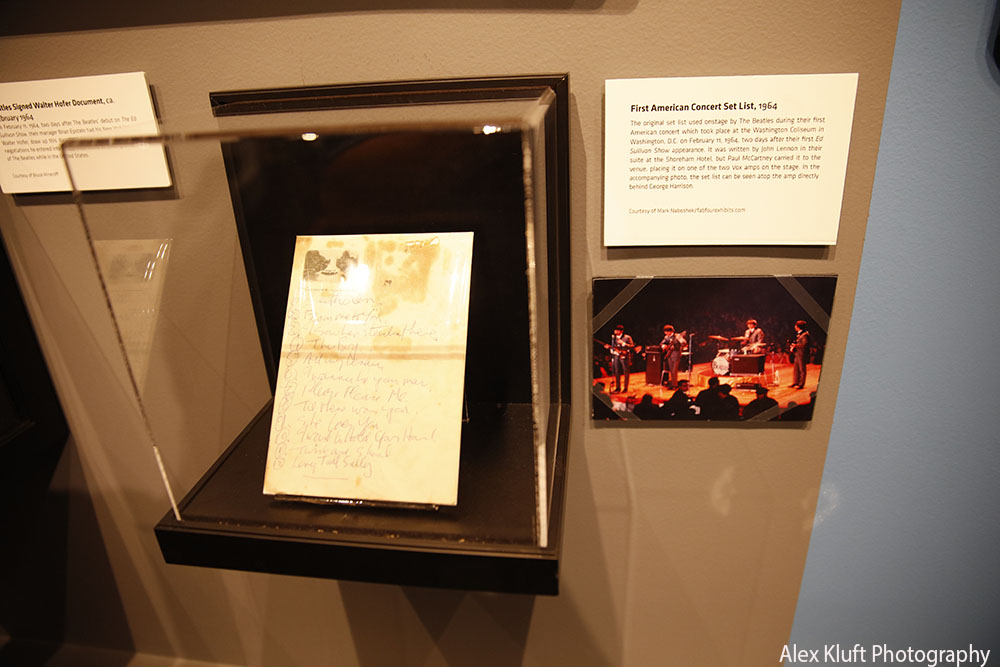 tles Signed Walter Hofer Document, ca.
bruary 1964
February 11, 1964, two days after The Beatles' debut on The Ed
Sullivan Show, their manager Brian Epstein had his
Walter Hofer, draw up this
negotiations he entered into
of The Beatles while in the United States.
Courtesy of Bruce
First American Concert Set List, 1964
The original set list used onstage by The Beatles during their first
American concert which took place at the Washington Coliseum in
Washington, D.C. on February 11, 1964, two days after their first Ed
Sullivan Show appearance. It was written by John Lennon in their
suite at the Shoreham Hotel, but Paul McCartney carried it to the
venue, placing it on one of the two Vox amps on the stage. In the
accompanying photo, the set list can be seen atop the amp directly
behind George Harrison.
Courtesy of Mark Naboshek/fabfourexhibits.com
This Boy
Please Please Me
Till There was You
She Loves You
Twist and Shout
Long Tall Sally
Alex Kluft Photography